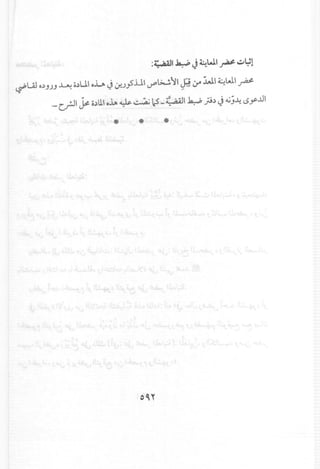 إثبات محضر المعاينة في ضبط القضيّة:
محضر المعاينة المعدّ من قِبَل الأشخاص المذكورين في هذه المادة بعد وروده لقاضي
الدعوى يدوّنه في دفتر ضبط القضيّة ـ كما نصّت عليه هذه المادة محلّ الشرح ـ
• • •
٥٩٢